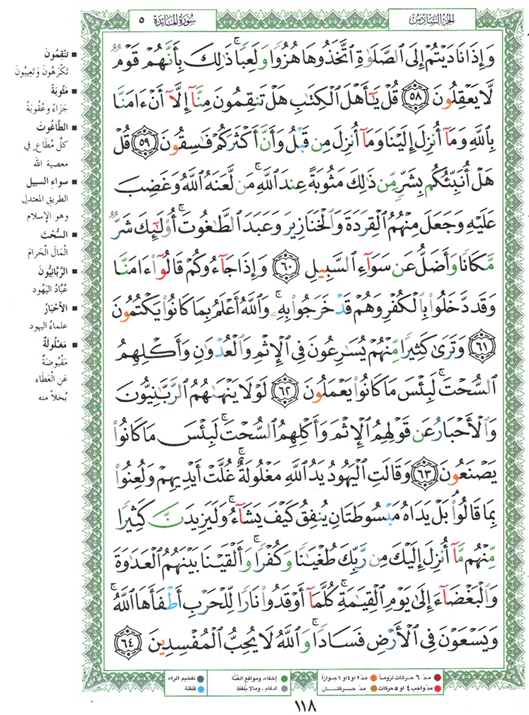 الجزء السادس
سورة المائدة ٥
وَإِذَا نَادَيْتُمْ إِلَى الصَّلَوٰةِ اتَّخَذُوهَا هُزُوًا وَلَعِبًا ۚ ذَٰلِكَ بِأَنَّهُمْ قَوْمٌ
لَّا يَعْقِلُونَ ٥٨ قُلْ يَٰٓأَهْلَ الْكِتَٰبِ هَلْ تَنقِمُونَ مِنَّآ إِلَّآ أَنْ ءَامَنَّا
بِاللَّهِ وَمَآ أُنزِلَ إِلَيْنَا وَمَآ أُنزِلَ مِن قَبْلُ وَأَنَّ أَكْثَرَكُمْ فَٰسِقُونَ ٥٩ قُلْ
هَلْ أُنَبِّئُكُم بِشَرٍّ مِّن ذَٰلِكَ مَثُوبَةً عِندَ اللَّهِ ۚ مَن لَّعَنَهُ اللَّهُ وَغَضِبَ
عَلَيْهِ وَجَعَلَ مِنْهُمُ الْقِرَدَةَ وَالْخَنَازِيرَ وَعَبَدَ الطَّٰغُوتَ ۚ أُو۟لَٰٓئِكَ شَرٌّ
مَّكَانًا وَأَضَلُّ عَن سَوَآءِ السَّبِيلِ ٦٠ وَإِذَا جَآءُوكُمْ قَالُوٓا۟ ءَامَنَّا
وَقَد دَّخَلُوا۟ بِالْكُفْرِ وَهُمْ قَدْ خَرَجُوا۟ بِهِۦ ۚ وَاللَّهُ أَعْلَمُ بِمَا كَانُوا۟ يَكْتُمُونَ
٦١ وَتَرَىٰ كَثِيرًا مِّنْهُمْ يُسَٰرِعُونَ فِي الْإِثْمِ وَالْعُدْوَٰنِ وَأَكْلِهِمُ
السُّحْتَ ۚ لَبِئْسَ مَا كَانُوا۟ يَعْمَلُونَ ٦٢ لَوْلَا يَنْهَىٰهُمُ الرَّبَّٰنِيُّونَ
وَالْأَحْبَارُ عَن قَوْلِهِمُ الْإِثْمَ وَأَكْلِهِمُ السُّحْتَ ۚ لَبِئْسَ مَا كَانُوا۟
يَصْنَعُونَ ٦٣ وَقَالَتِ الْيَهُودُ يَدُ اللَّهِ مَغْلُولَةٌ ۚ غُلَّتْ أَيْدِيهِمْ وَلُعِنُوا۟
بِمَا قَالُوا۟ ۘ بَلْ يَدَاهُ مَبْسُوطَتَانِ يُنفِقُ كَيْفَ يَشَآءُ ۚ وَلَيَزِيدَنَّ كَثِيرًا
مِّنْهُم مَّآ أُنزِلَ إِلَيْكَ مِن رَّبِّكَ طُغْيَٰنًا وَكُفْرًا ۚ وَأَلْقَيْنَا بَيْنَهُمُ الْعَدَٰوَةَ
وَالْبَغْضَآءَ إِلَىٰ يَوْمِ الْقِيَٰمَةِ ۚ كُلَّمَآ أَوْقَدُوا۟ نَارًا لِّلْحَرْبِ أَطْفَأَهَا اللَّهُ ۚ
وَيَسْعَوْنَ فِي الْأَرْضِ فَسَادًا ۚ وَاللَّهُ لَا يُحِبُّ الْمُفْسِدِينَ ٦٤
■ تَنقِمُونَ
تَكْرَهُونَ وَتَعِيبُونَ
■ مَثُوبَةً
جَزَاءً وَعُقُوبَةً
■ الطَّاغُوتَ
كلّ مُطَاع في
معصية الله
■ سواء السبيل
الطريق المعتدل
وهو الإسلام
■ السُّحْتَ
المَالَ الحَرَامَ
■ الرَّبَّانِيُّونَ
عُبَّادُ اليَهُود
■ الأَحْبَارُ
علماءُ اليهود
■ مَغْلُولَةٌ
مَقْبُوضَةٌ
عَنِ العَطَاءِ
بُخلاً منه
مدّ ٦ حركات لزوماً
مدّ ٢ أو ٤ أو ٦ جوازاً
مدّ واجب ٤ أو ٥ حركات
مدّ حركتان
إخفاء، ومواقع الغُنَّة
ادغام، ومالا يلفظ
تفخيم الراء
قلقلة
١١٨